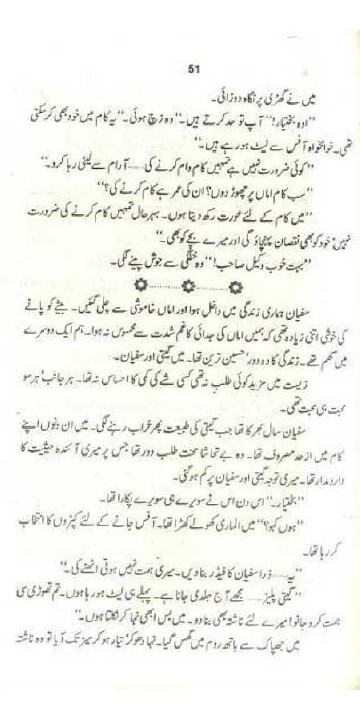 51
میں نے گھڑی پر نگاہ دوڑائی۔
"اوہ بختیار!" آپ تو حد کرتے ہیں۔" وہ زچ ہوئی۔" یہ کام میں خود بھی کر سکتی
تھی۔ خوامخواہ آفس سے لیٹ ہو رہے ہیں۔"
"کوئی ضرورت نہیں ہے تمہیں کام وام کرنے کی...... آرام سے لیٹی رہا کرو۔"
"سب کام اماں پر چھوڑ دوں؟ ان کی عمر ہے کام کرنے کی؟"
"میں کام کے لئے عورت رکھ دیتا ہوں۔ بہرحال تمہیں کام کرنے کی ضرورت
نہیں' خود کو بھی نقصان پہنچاؤ گی اور میرے بچے کو بھی۔"
"بہت خوب وکیل صاحب!" وہ خفگی سے جوش پینے لگی۔
سفیان ہماری زندگی میں داخل ہوا اور اماں خاموشی سے چلی گئیں۔ بیٹے کو پانے
کی خوشی اتنی زیادہ تھی کہ ہمیں اماں کی جدائی کا غم شدت سے محسوس نہ ہوا۔ ہم ایک دوسرے
میں گم تھے۔ زندگی کا وہ دور' حسین ترین تھا۔ میں' گیتی اور سفیان۔
زیست میں مزید کوئی طلب نہ تھی کسی شے کی کمی کا احساس نہ تھا۔ ہر جانب' ہر سو
محبت ہی محبت تھی۔
سفیان سال بھر کا تھا جب گیتی کی طبیعت پھر خراب رہنے لگی۔ میں ان دنوں اپنے
کام میں از حد مصروف تھا۔ وہ بے تحاشا محنت طلب دور تھا جس پر میری آئندہ حیثیت کا
دارومدار تھا۔ میری توجہ گیتی اور سفیان پر کم ہو گئی۔
"بختیار۔" اس دن اس نے سویرے ہی سویرے پکارا تھا۔
"ہوں کہو؟" میں الماری کھولے کھڑا تھا۔ آفس جانے کے لئے کپڑوں کا انتخاب
کر رہا تھا۔
"یہ...... ذرا سفیان کا فیڈر بنا دیں۔ میری ہمت نہیں ہوتی اٹھنے کی۔"
"گیتی پلیز...... مجھے آج جلدی جانا ہے۔ پہلے ہی لیٹ ہو رہا ہوں۔ تم تھوڑی سی
ہمت کرو جانو! میرے لئے ناشتہ بھی بنا دو۔ میں بس ابھی نہا کر نکلتا ہوں۔"
میں جھپاک سے باتھ روم میں گھس گیا۔ نہا دھو کر' تیار ہو کر میز تک آیا تو وہ ناشتہ